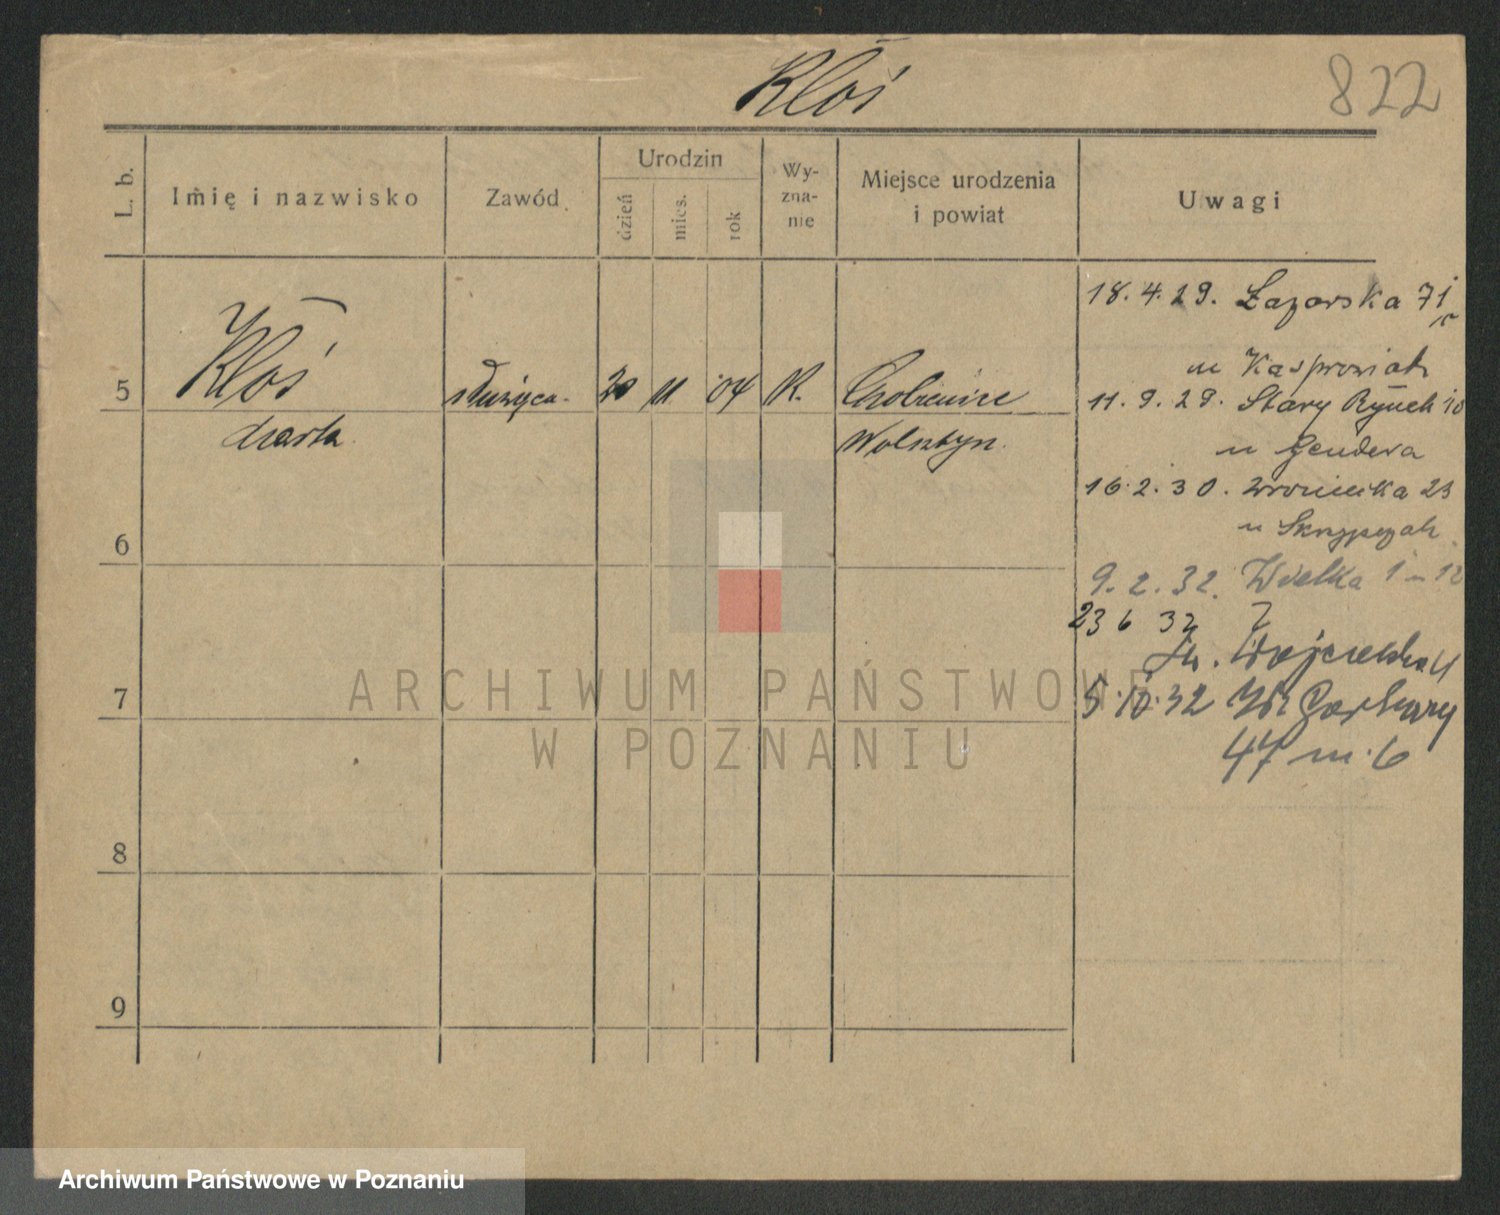 Kloś
822
L. b.
Imię i nazwisko
Zawód
Urodzin
dzień
mies.
rok
Wy-
zna-
nie
Miejsce urodzenia
i powiat
Uwagi
18.4.29. Łazarska 71
u Kasprowiak
5
Kloś
służąca.
11
04
R.
Chobienice
11.9.29. Stary Rynek 10
Marta
Wolsztyn.
u Gendera
16.2.30. Wroniecka 23
6
u Skrzypczak
9.2.32. Wielka 1 m 12
23 6 32
7
Św. Wojciecha
5.10.32 W Garbary
47 m. 6
8
9
ARCHIWUM PAŃSTWOWE
W POZNANIU
Archiwum Państwowe w Poznaniu